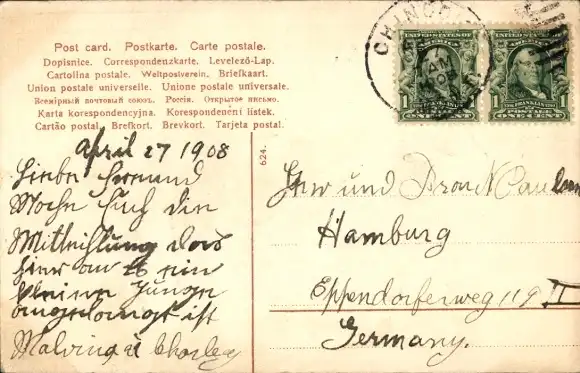 Post card. Postkarte. Carte postale.
Dopisnice. Correspondenzkarte. Levelező-Lap.
Cartolina postale. Weltpostverein. Briefkaart.
Union postale universelle. Unione postale universale.
Всемірный почтовый союзъ. Россія. Открытое письмо.
Karta korespondencyjna. Korespondenčni listek.
Cartão postal. Brefkort. Brevkort. Tarjeta postal.
624.
April 27 1908
Liebe
Mache Euch die
Mittheilung dass
hier am 26 ein
kleiner Junge
angelangt ist
Malvina & Charley
UNITED STATES OF
AMERICA
1 FRANKLIN 1
ONE CENT
UNITED STATES OF
AMERICA
1 FRANKLIN 1
ONE CENT
Herr und Frau
Hamburg
Eppendorferweg 119 II
Germany.